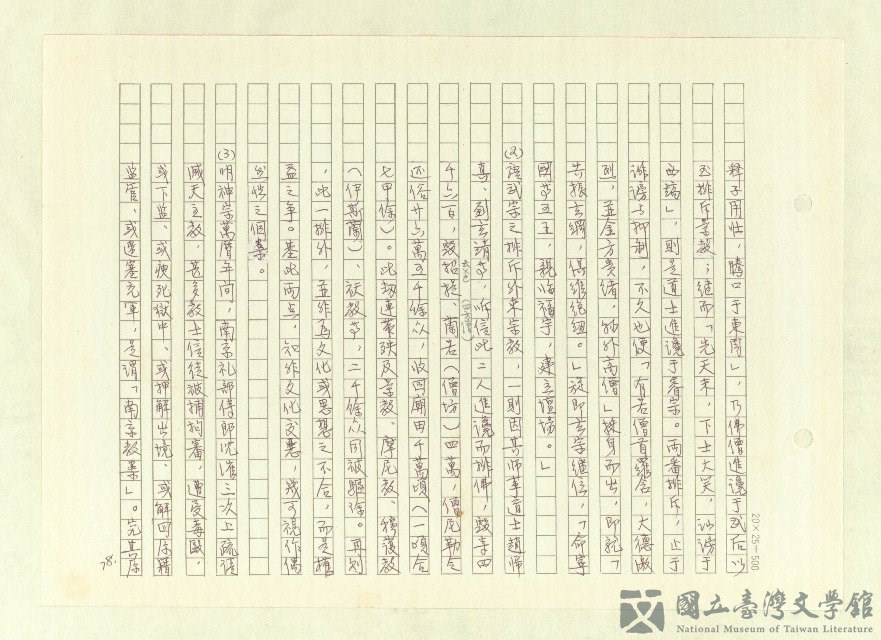 釋子用壯，騰口于東周」，乃佛僧進讒于武后以
至排斥景教；繼而「先天末，下士大笑，訕謗于
西鎬」，則是道士進讒于睿宗。兩番排斥，止于
誹謗与抑制，不久也便「有若僧首羅含，大德及
烈，並金方貴緒，物外高僧」挺身而出，即就「
共振玄綱，俱維絕紐。」旋即玄宗繼位，「命寧
國等五王，親臨福宇，建立壇場。」
(2)讓武宗之排斥外來宗教，一則因其師事道士趙歸
真、劉玄靖等，听信此二人進讒而排佛，毀寺四
千六百，毀招提、蘭若（僧坊）四萬，僧尼勒令
还俗廿六萬五千餘众，收回廟田千萬頃（一頃合
七甲餘）。此劫連帶殃及景教、摩尼教、穆護教
（伊斯蘭）、祅教等，二千餘众同被驅除。再則
，此一排外，並非為文化或思想之不合，而是權
益之爭。基此兩点，知非文化交惡，或可視作偶
發性之個案。
(3)明神宗萬曆年间，南京礼部侍郎沈㴶三次上疏請
滅天主教，甚多教士信徒被捕拘審，遭受毒毆，
或下监、或瘐死獄中、或押解出境、或解回原籍
监管、或遣塞充軍，是謂「南京教案」。究其原
78.
20×25=500
國立臺灣文學館
National Museum of Taiwan Literature